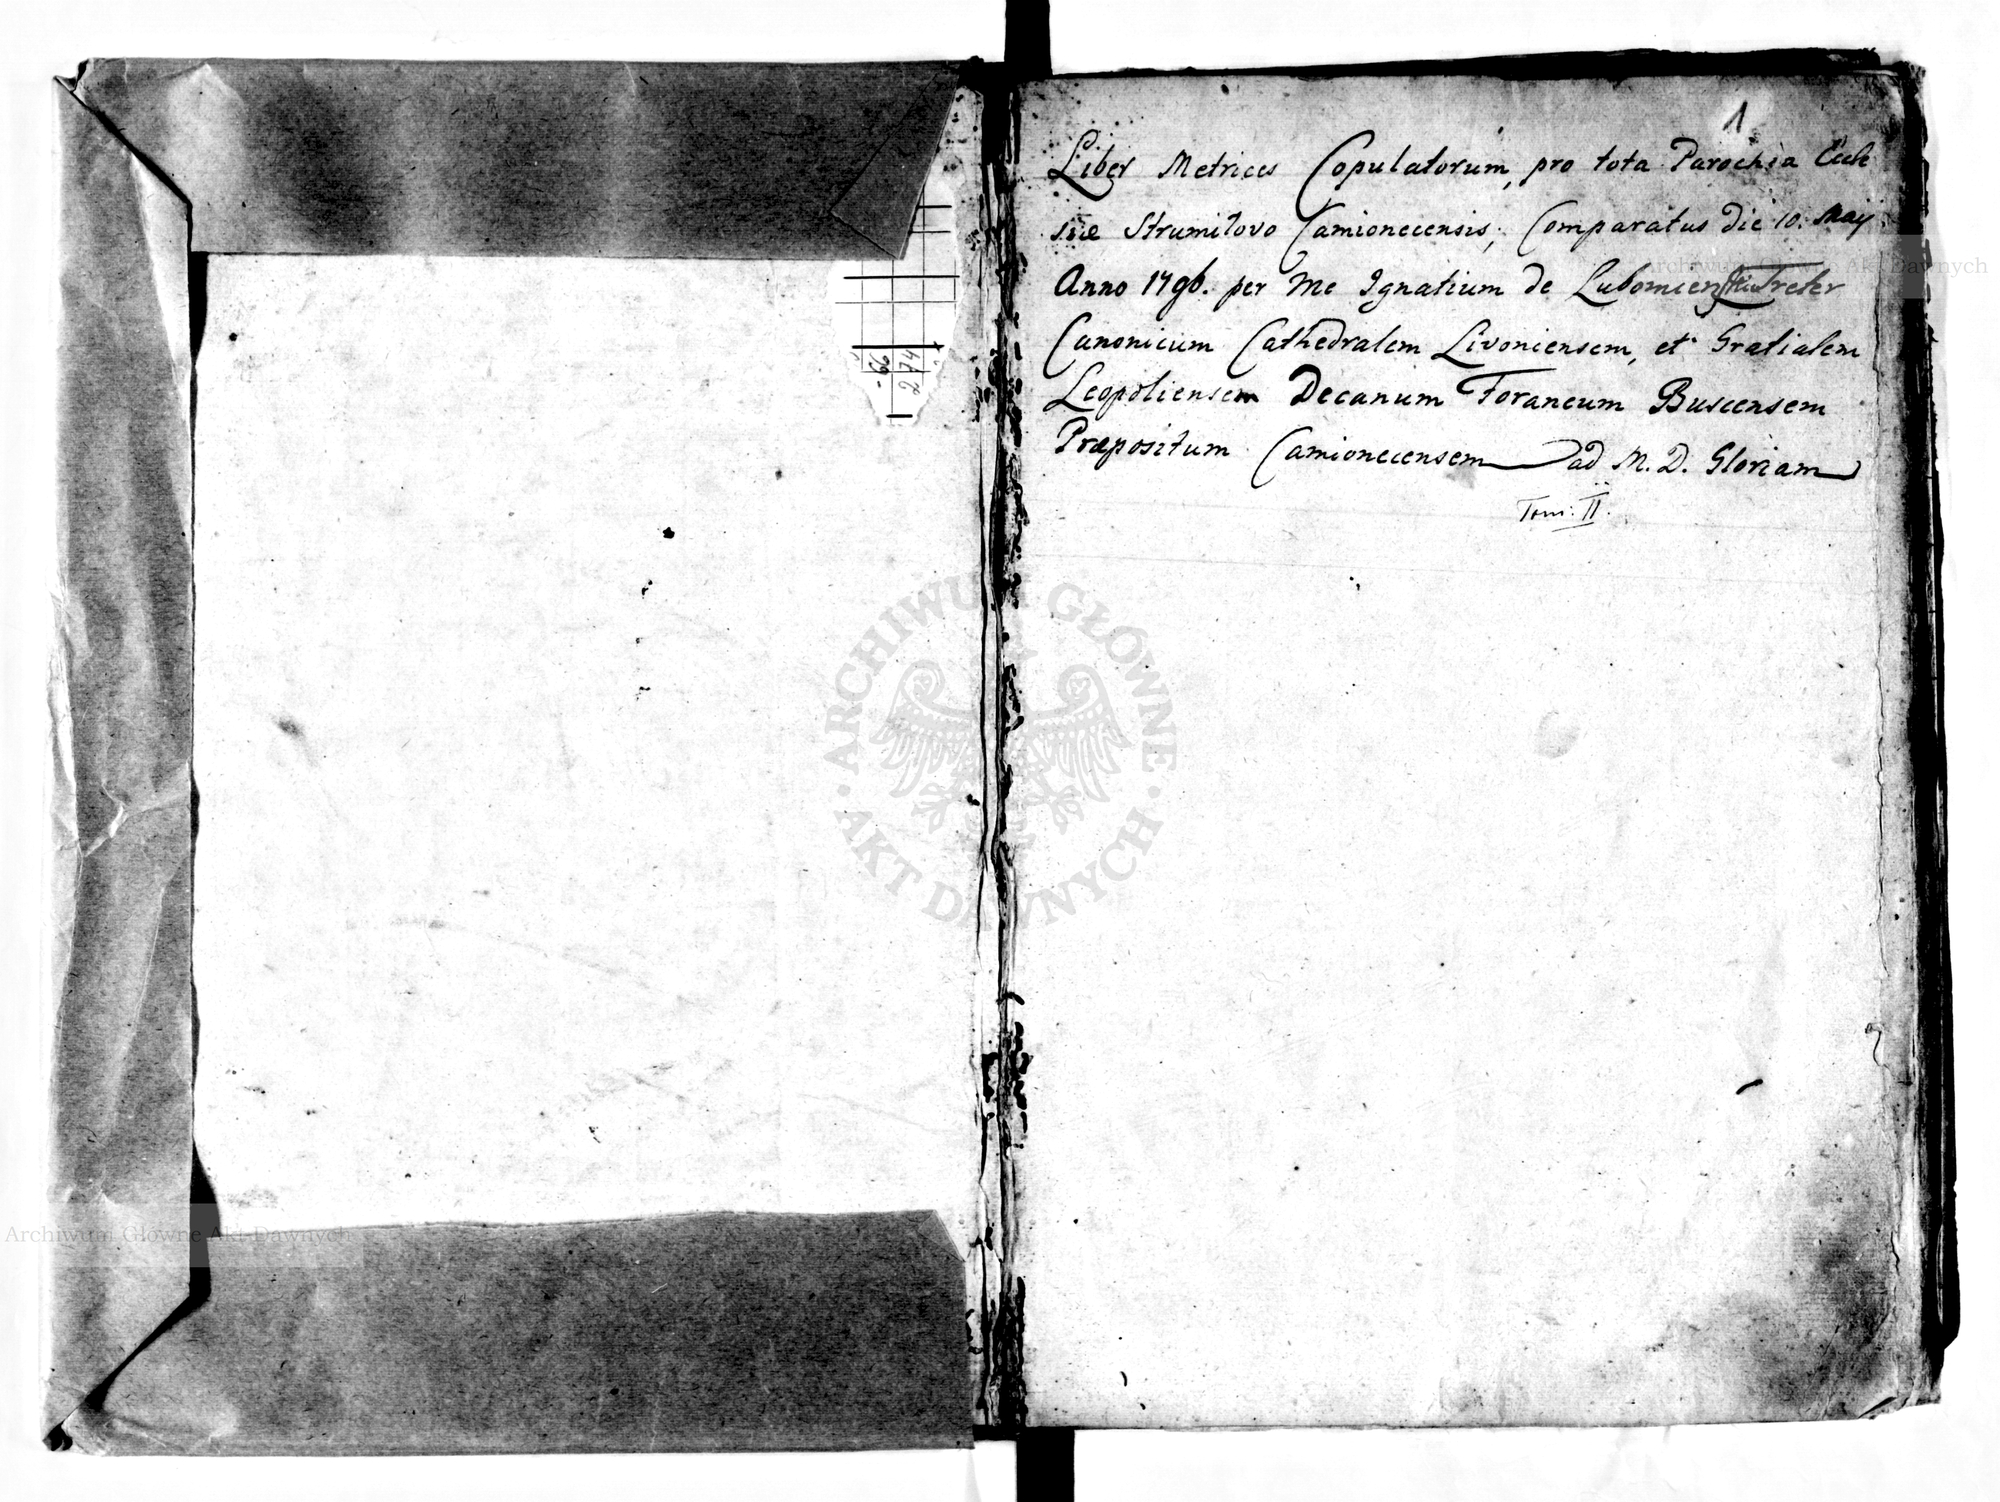 66
274
1
Liber Metrices Copulatorum, pro tota Parochia Eccle
siæ Strumilovo Camionecensis, Comparatus die 10. Maij
Anno 1796. per Me Ignatium de Lubomierz Treter
Canonicum Cathedralem Livoniensem, et Gratialem
Leopoliensem Decanum Foraneum Buscensem
Præpositum Camionecensem ad M. D. Gloriam
Tom: II.
Archiwum Główne Akt Dawnych
ARCHIWUM GŁÓWNE
AKT DAWNYCH
Archiwum Główne Akt Dawnych